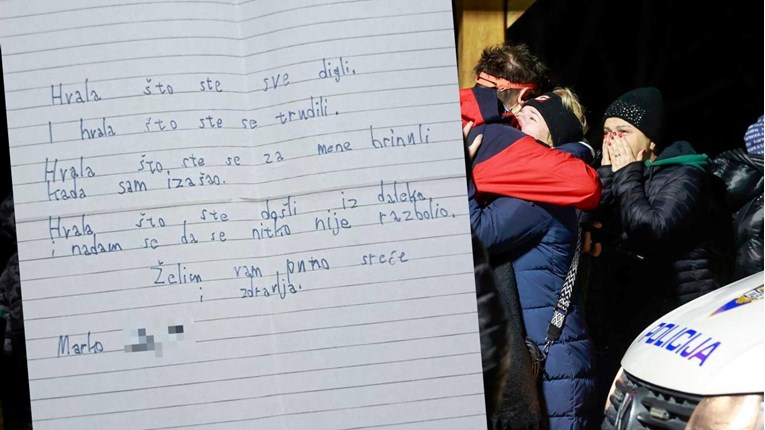 Hvala što ste sve digli.
I hvala što ste se trudili.
Hvala što ste se za mene brinuli
kada sam izašao.
Hvala što ste došli iz daleka
i nadam se da se nitko nije razbolio.
Želim vam puno sreće
i zdravlja.
Marko
POLICIJA